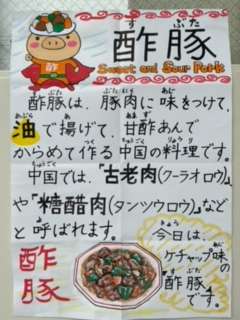 酢豚
すぶた
Sweet and Sour Pork
酢豚は、豚肉に味をつけて、
油で揚げて、甘酢あんで
からめて作る中国の料理です。
中国では、「古老肉(クーラオロウ)」
や「糖醋肉(タンツウロウ)」など
と呼ばれます。
今日は、
ケチャップ味の
酢豚
です。
酢豚